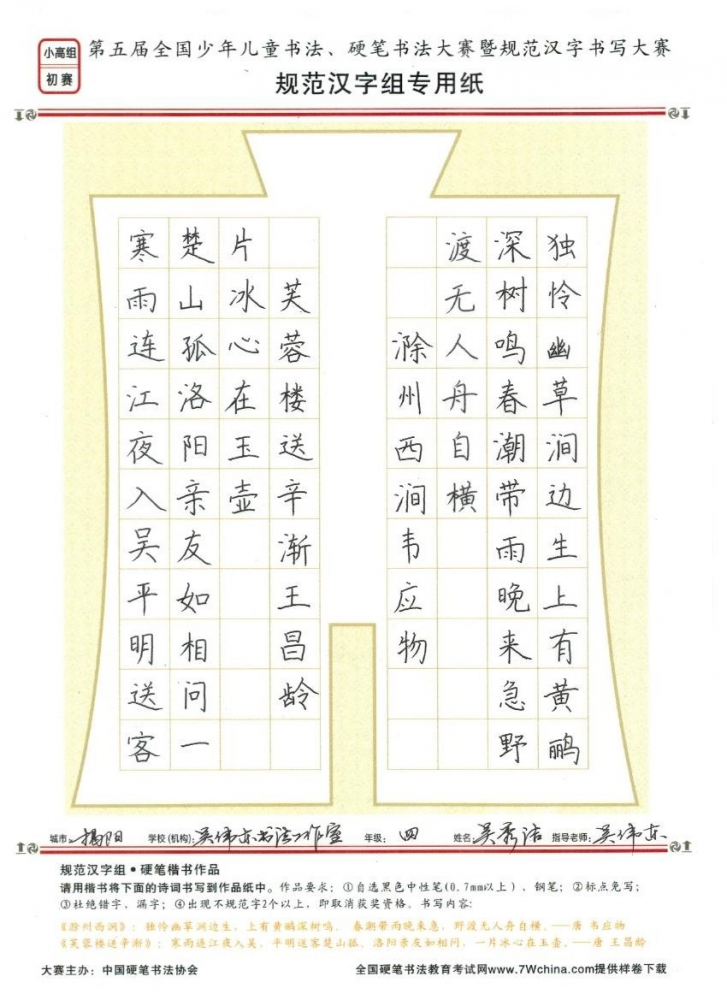 小高组
初赛
第五届全国少年儿童书法、硬笔书法大赛暨规范汉字书写大赛
规范汉字组专用纸
独怜幽草涧边生上有黄鹂
深树鸣春潮带雨晚来急野
渡无人舟自横
滁州西涧韦应物
寒雨连江夜入吴平明送客
楚山孤洛阳亲友如相问一
片冰心在玉壶
芙蓉楼送辛渐王昌龄
城市：揭阳 学校(机构)：吴伟东书法工作室 年级：四 姓名：吴秀洁 指导老师：吴伟东
规范汉字组•硬笔楷书作品
请用楷书将下面的诗词书写到作品纸中。作品要求：①自选黑色中性笔(0.7mm以上)，钢笔；②标点免写；
③杜绝错字，漏字；④出现不规范字2个以上，即取消获奖资格。书写内容：
《滁州西涧》：独怜幽草涧边生，上有黄鹂深树鸣。 春潮带雨晚来急，野渡无人舟自横。——唐 韦应物
《芙蓉楼送辛渐》：寒雨连江夜入吴，平明送客楚山孤。洛阳亲友如相问，一片冰心在玉壶。——唐 王昌龄
大赛主办：中国硬笔书法协会 全国硬笔书法教育考试网www.7Wchina.com提供样卷下载